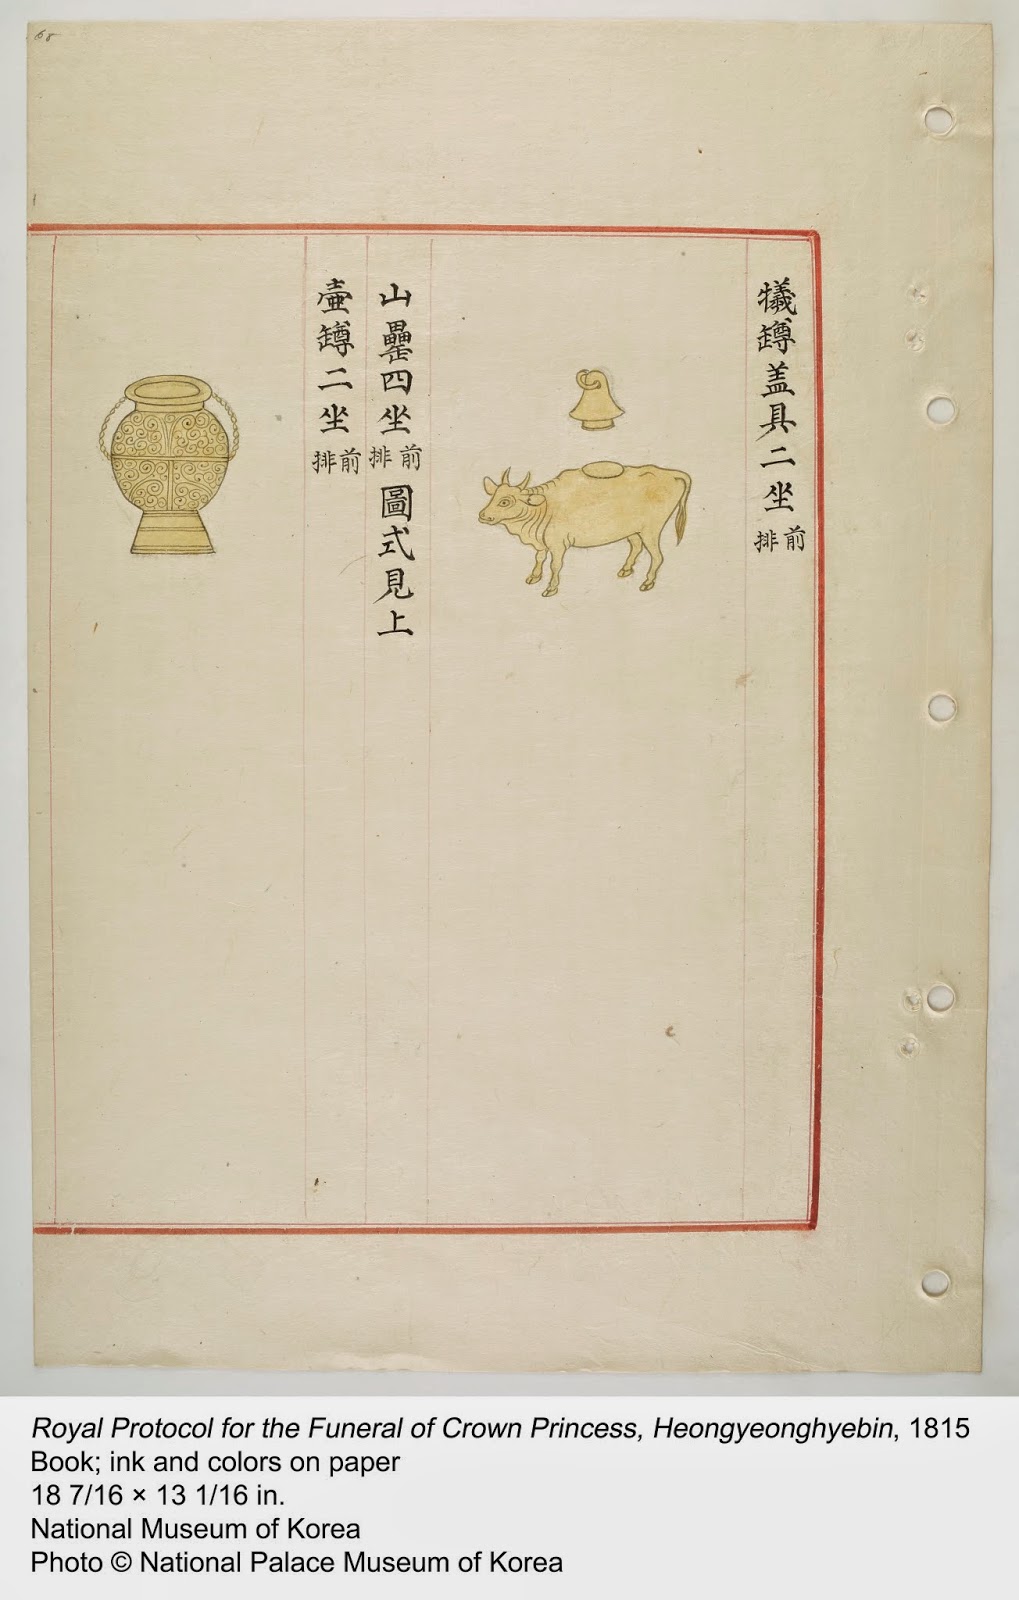 68
犧罇盖具二坐前排
山罍四坐前排圖式見上
壷罇二坐前排
Royal Protocol for the Funeral of Crown Princess, Heongyeonghyebin, 1815
Book; ink and colors on paper
18 7/16 × 13 1/16 in.
National Museum of Korea
Photo © National Palace Museum of Korea